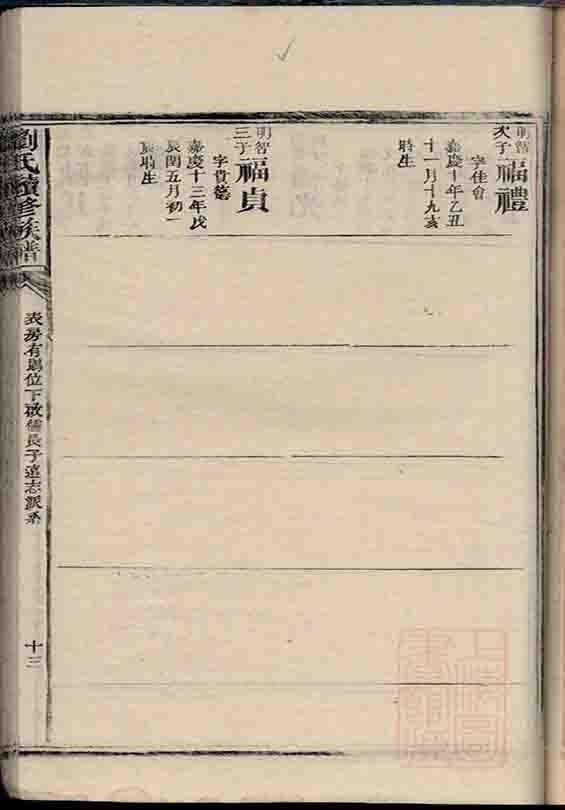 明智
次子
福禮
字佳會
嘉慶十年乙丑
十一月十九亥
時生
明智
三子
福貞
字貴
嘉慶十三年戊
辰閏五月初一
時生
劉氏續修族譜
表房有 位下 儒長子 志派系
十三
上海圖
書館藏